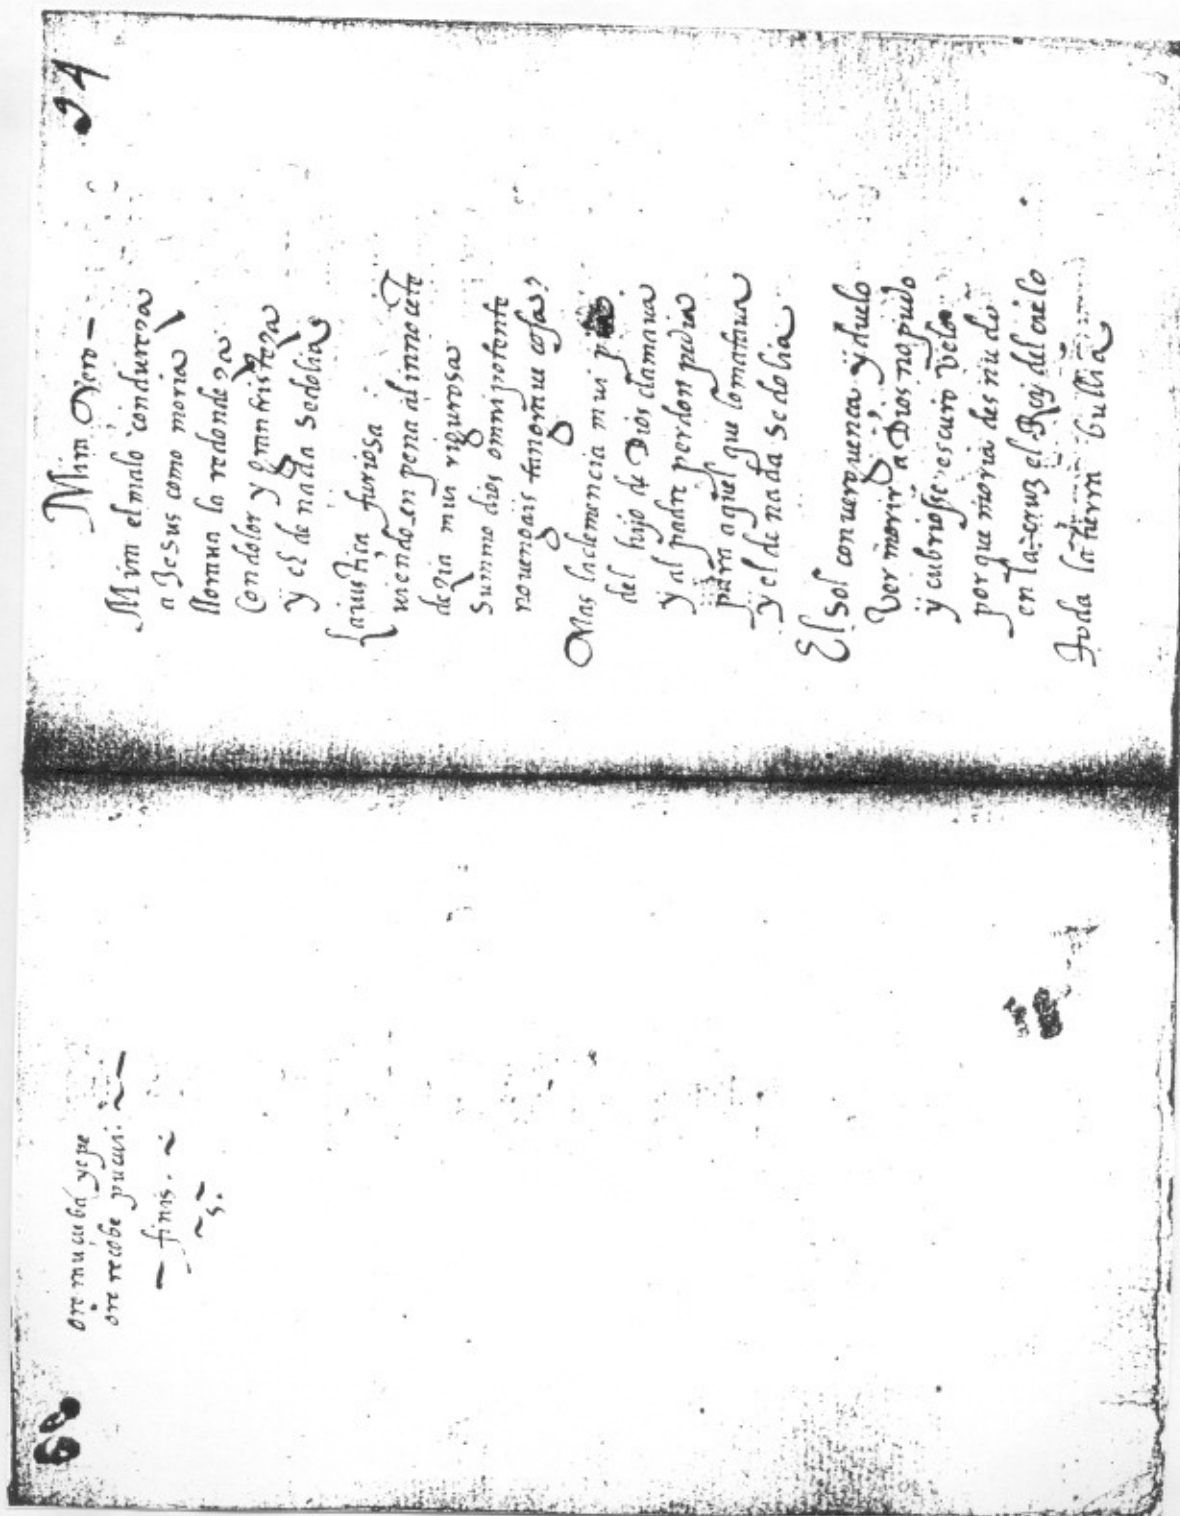 60
ore mũcuba yepe
ore recobe pucui.
finis.
s.
24
Mira Nero
Mira el malo con dureza
a Jesus como moria
lloraua la redondeza
con dolor y gran tristeza
ÿ el de nada se dolia
La iusticia furiosa
uiendo en pena al innocẽte
dezia mui rigurosa
Summo dios omnipotente
no uengais tan graue cosa?
Mas la clemencia mui
del hijo de Dios clamaua
ÿ al padre perdon pidia
para aquel que lo mataua
y el de nada se dolia
El Sol con uerguenca ÿ duelo
ver morir a Dios no pudo
ÿ cubriosse escuro velo
porque moria desnudo
en la cruz el Roy del cielo
Toda la tierra bullia